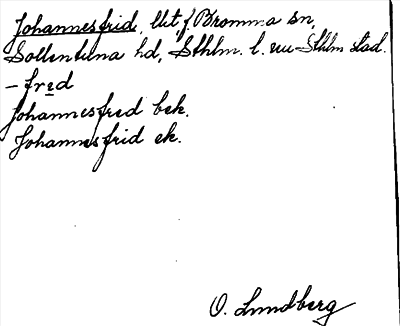 Johannesfrid, lht, f. Bromma sn,
Sollentuna hd, Sthlm. l. nu Sthlm stad.
– fred
Johannesfred bek.
Johannesfrid ek.
O. Lundberg